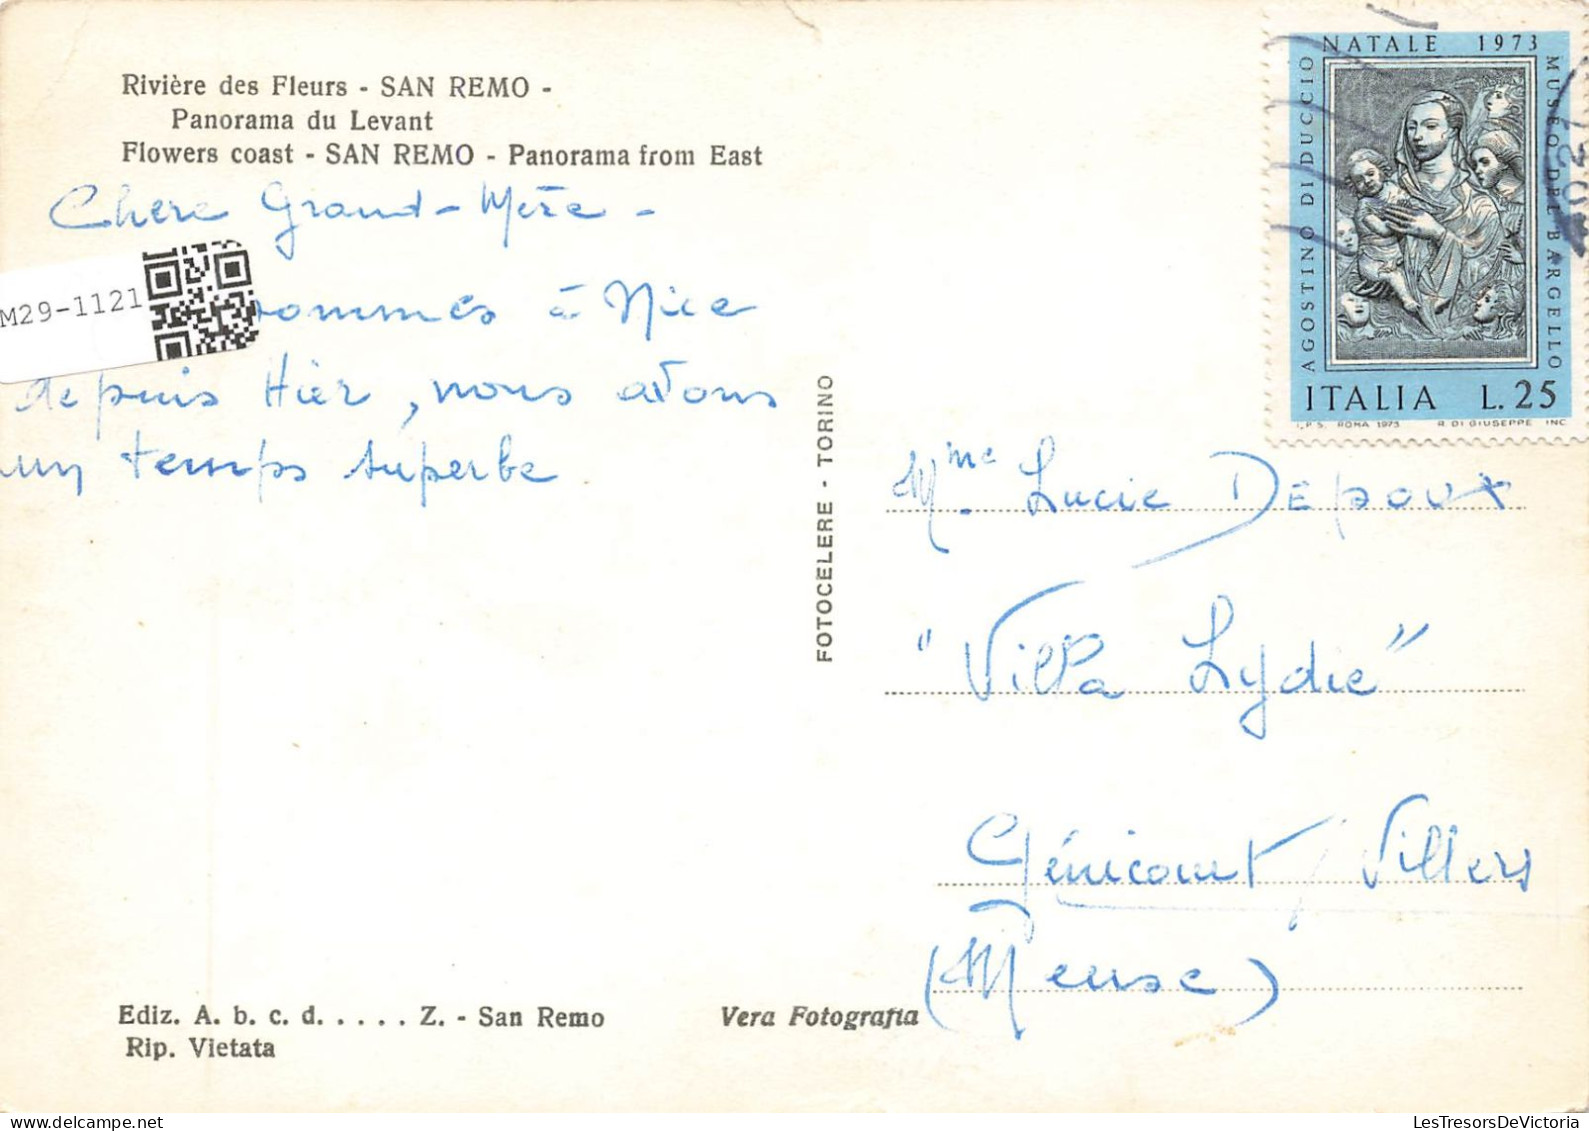 Rivière des Fleurs - SAN REMO -
Panorama du Levant
Flowers coast - SAN REMO - Panorama from East
Chère Grand-Mère -
M29-1121
sommes à Nice
depuis Hier, nous avons
un temps superbe
FOTOCELERE - TORINO
NATALE 1973
AGOSTINO DI DUCCIO
MUSEO DEL BARGELLO
ITALIA L.25
I.P.S. ROMA 1973 R. DI GIUSEPPE INC
Mme Lucie DEpoux
"Villa Lydie"
Génicourt / Villers
(Meuse)
Ediz. A. b. c. d. . . . . Z. - San Remo
Rip. Vietata
Vera Fotografia
LesTresorsDeVictoria.com